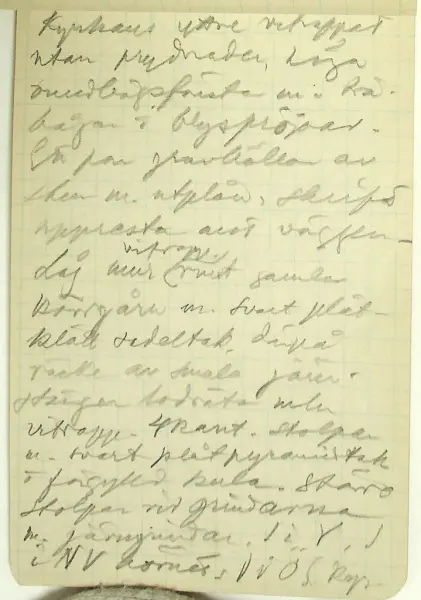 Kyrkans yttre vitrappat
utan prydnader, höga
rundbågsfönster m. trä-
bågar o blyspröjsar.
Ett par gravhällar av
sten m. utplån. skrift
uppresta mot väggen –
Låg mur (vitrapp.) runt gamla
körrgårn m. svart plåt-
klätt sadeltak, därpå
räcke av smala järn-
stänger vodräta mln
vitrapp. 4kant. stolpar
m. svart plåtpyramidtak
o förgylld kula. Större
stolpar vid grindarna
m. järngrindar. 1 i V, 1
i NV hörnet, 1 i Ö